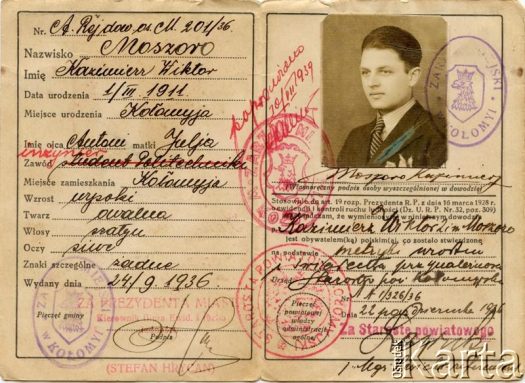 Nr. A. Rej. dow. os. M. 204/36
Nazwisko Moszoro
Imię Kazimierz Wiktor
Data urodzenia 1/III. 1911
Miejsce urodzenia Kołomyja
Imię ojca Antoni matki Julja
inżynier
Zawód student Politechniki
Miejsce zamieszkania Kołomyja
Wzrost wysoki
Twarz owalna
Włosy szatyn
Oczy siwe
Znaki szczególne żadne
Wydany dnia 24/9 1936
ZA PREZYDENTA MIASTA
Pieczęć gminy
W KOŁOMYI
Podpis
(STEFAN HRYCAN)
poprawiono
10/III 1939
W KOŁOMYI
Moszoro Kazimierz
(Własnoręczny podpis osoby wyszczególnionej w dowodzie)
Stosownie do art. 19 rozp. Prezydenta R. P. z dnia 16 marca 1928 r.
o ewidencji i kontroli ruchu ludności (Dz. U. R. P. Nr. 32, poz. 309)
że wymieniony w niniejszym dowodzie
Kazimierz Wiktor Moszoro
jest obywatelem polskim, co zostało stwierdzone
na podstawie metryki urodzin
i
Urząd
326/36
Pieczęć
powiatowej
władzy
administracji
ogólnej
dnia 22 października 1936
Za Starostę powiatowego
Ośrodek
Karta
www.karta.org.pl